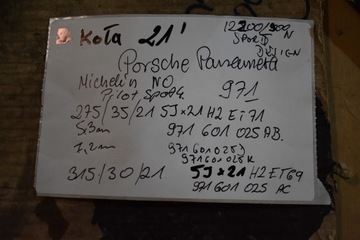 Koła 21'
12200/300 N
SPORT DESIGN
Porsche Panamera
Michelin NO
Pilot Sport4
971
275/35/21 9J x 21 H2 ET71
5,3mm 971 601 025 AB.
7,2mm 971 601 025 J
971 601 025 K
315/30/21 11,5J x 21 H2 ET69
971 601 025 AC